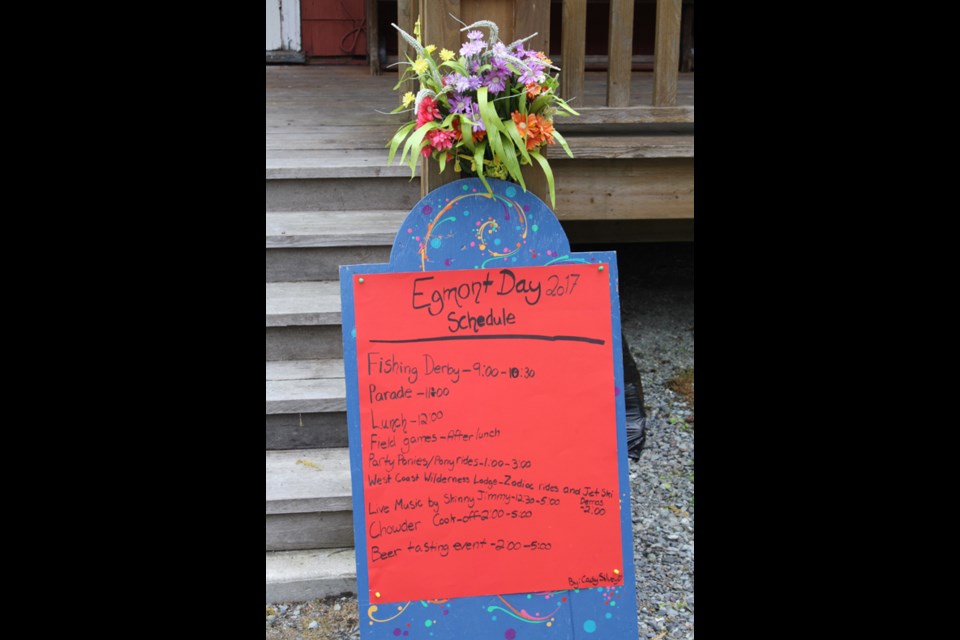 Egmont Day 2017
Schedule
Fishing Derby - 9:00 - 10:30
Parade - 11:00
Lunch - 12:00
Field games - After lunch
Party Ponies/Pony rides - 1:00 - 3:00
West Coast Wilderness Lodge - Zodiac rides and Jet Ski
Demos
- 2:00
Live Music by Skinny Jimmy - 12:30 - 5:00
Chowder Cook-off - 2:00 - 5:00
Beer tasting event - 2:00 - 5:00
By: